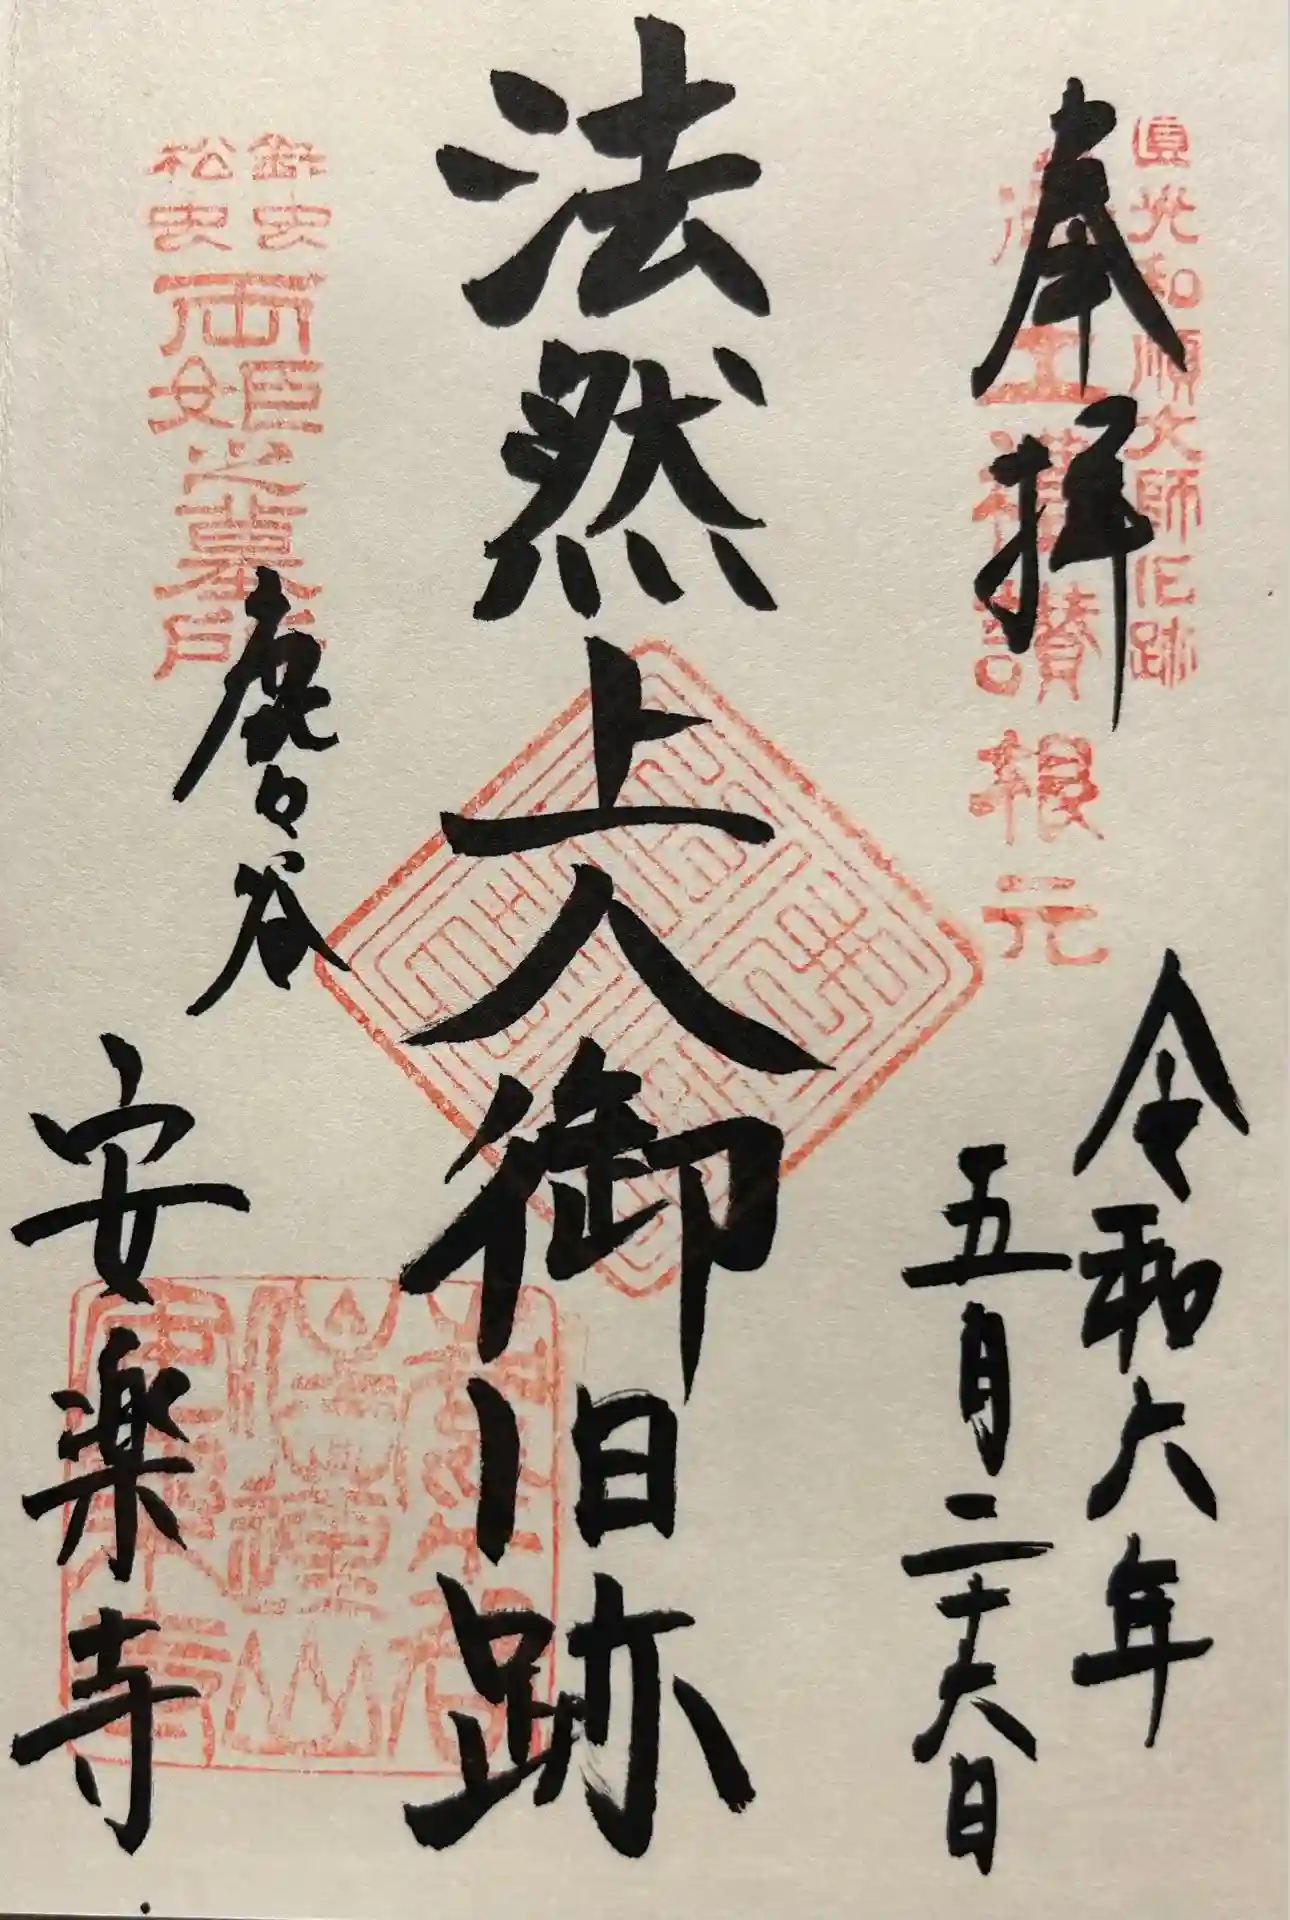 圓光和順大師旧跡
浄土禮讃根元
奉拝
令和六年
五月二十六日
法然上人御旧跡
鈴虫
松虫
両姫之墓所
鹿ヶ谷
安楽寺